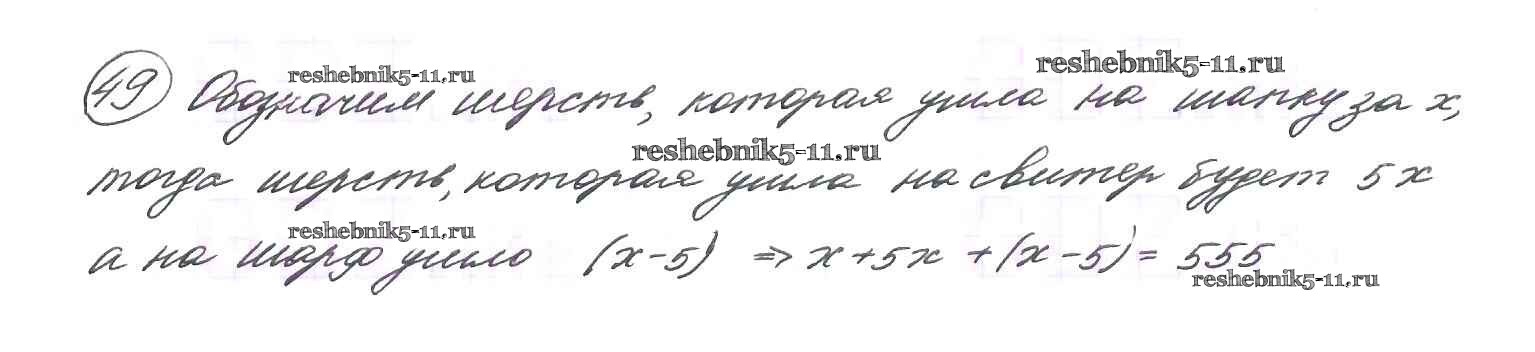 49 Обозначим шерсть, которая ушла на шапку за x,
тогда шерсть, которая ушла на свитер будет 5x
а на шарф ушло (x-5) ⇒ x+5x +(x-5)= 555
reshebnik5-11.ru
reshebnik5-11.ru
reshebnik5-11.ru
reshebnik5-11.ru
reshebnik5-11.ru